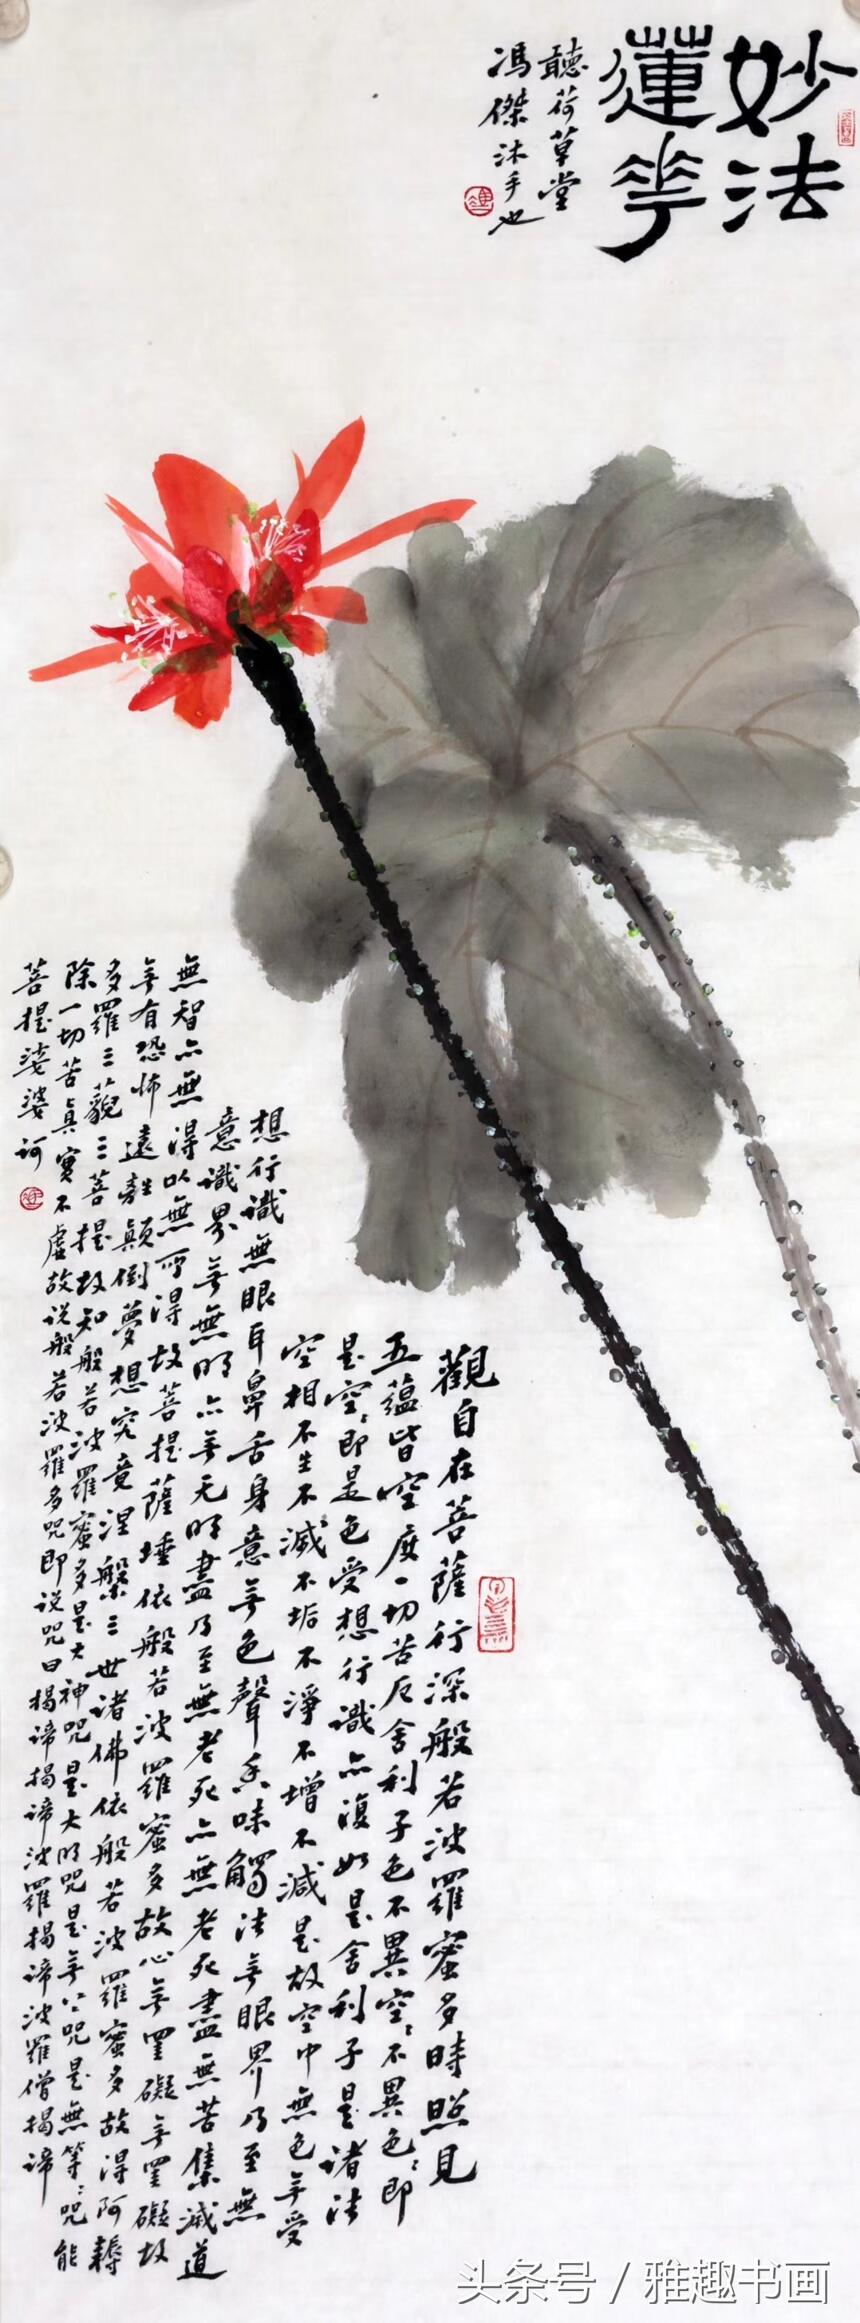 妙法
蓮華
聽荷草堂
馮傑沐手也
觀自在菩薩行深般若波羅蜜多時照見
五蘊皆空度一切苦厄舍利子色不異空〻不異色〻即
是空〻即是色受想行識亦復如是舍利子是諸法
空相不生不滅不垢不淨不增不減是故空中無色無受
想行識無眼耳鼻舌身意無色聲香味觸法無眼界乃至無
意識界無無明亦無无明盡乃至無老死亦無老死盡無苦集滅道
無智亦無得以無所得故菩提薩埵依般若波羅蜜多故心無罣礙無罣礙故
無有恐怖遠離顛倒夢想究竟涅槃三世諸佛依般若波羅蜜多故得阿耨
多羅三藐三菩提故知般若波羅蜜多是大神咒是大明咒是無上咒是無等〻咒能
除一切苦真實不虛故説般若波羅多咒即説咒曰揭諦揭諦波羅揭諦波羅僧揭諦
菩提娑婆訶
头条号 / 雅趣书画